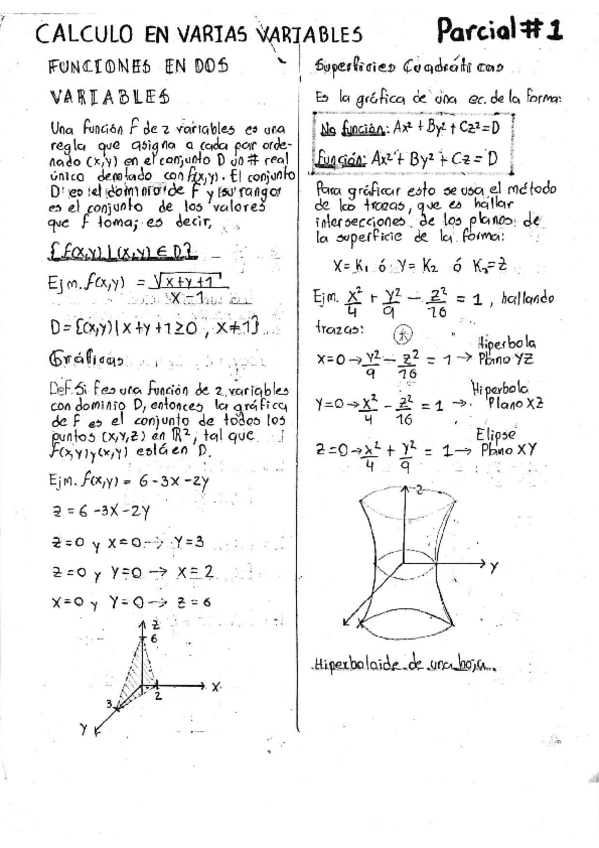 CALCULO EN VARIAS VARIABLES
Parcial #1
FUNCIONES EN DOS
VARIABLES
Una función f de 2 variables es una
regla que asigna a cada par orde-
nado (x,y) en el conjunto D un # real
único denotado con f(x,y). El conjunto
D es el dominio de f y su rango
es el conjunto de los valores
que f toma; es decir,
{f(x,y) | (x,y) ∈ D}
Ejm. f(x,y) = √(x+y+1) / (x-1)
D={(x,y)| x+y+1≥0 , x≠1}
Gráficas
Def. Si f es una función de 2 variables
con dominio D, entonces la gráfica
de f es el conjunto de todos los
puntos (x,y,z) en R², tal que
f(x,y) y (x,y) está en D.
Ejm. f(x,y) = 6-3x-2y
z = 6-3x-2y
z=0 y x=0 → y=3
z=0 y y=0 → x=2
x=0 y y=0 → z=6
z
6
x
2
3
y
Superficies Cuadráticas
Es la gráfica de una ec. de la forma:
No función: Ax² + By² + Cz² = D
Función: Ax² + By² + Cz = D
Para gráficar esto se usa el método
de las trazas, que es hallar
intersecciones de los planos de
la superficie de la forma:
x=K₁ ó y=K₂ ó K₃=z
Ejm. x²/4 + y²/9 - z²/16 = 1 , hallando
trazas:
x=0 → y²/9 - z²/16 = 1 → Hiperbola Plano YZ
y=0 → x²/4 - z²/16 = 1 → Hiperbola Plano XZ
z=0 → x²/4 + y²/9 = 1 → Elipse Plano XY
z
y
x
Hiperboloide de una hoja